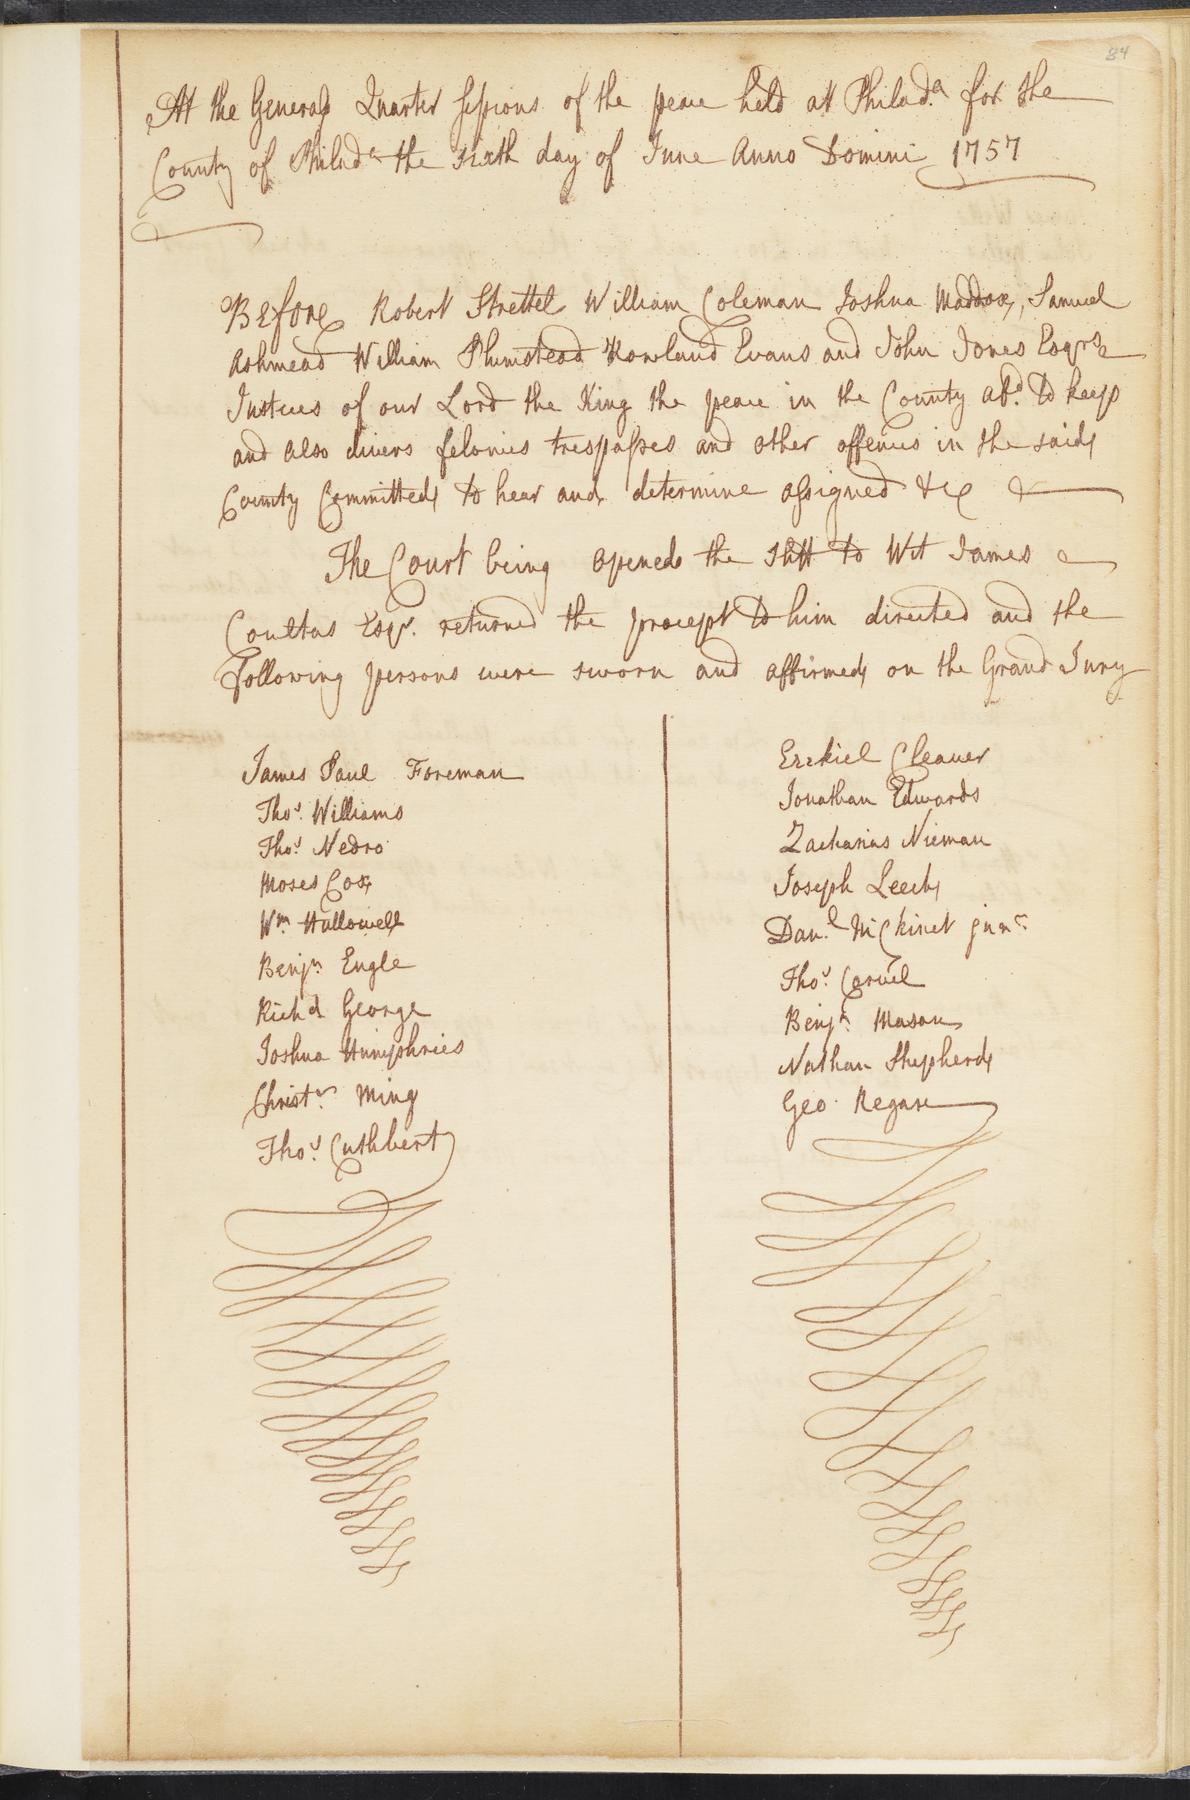 84
At the General Quarter Sessions of the peace held at Philad.a for the
County of Philad.a the sixth day of June Anno Domini 1757
Before Robert Strettel William Coleman Joshua Maddox, Samuel
Ashmead William Plumstead Rowland Evans and John Jones Esqrs
Justices of our Lord the King the peace in the County afd. to keep
and also divers felonies trespasses and other offences in the said
County Committed to hear and determine assigned &c &
The Court being opened the Shff to Wit James
Coultas Esqr. returned the precept to him directed and the
following persons were sworn and affirmed on the Grand Jury
James Paul Foreman
Thos. Williams
Thos. Nedro
Moses Cox
Wm. Hallowell
Benjn. Engle
Richd. George
Joshua Humphries
Christr. Ming
Thos. Cuthbert
Ezekiel Cleaver
Jonathan Edwards
Zacharias Nieman
Joseph Leech
Danl. McKinet junr.
Thos. Carvil
Benjn. Mason
Nathan Shepherd
Geo. Regare